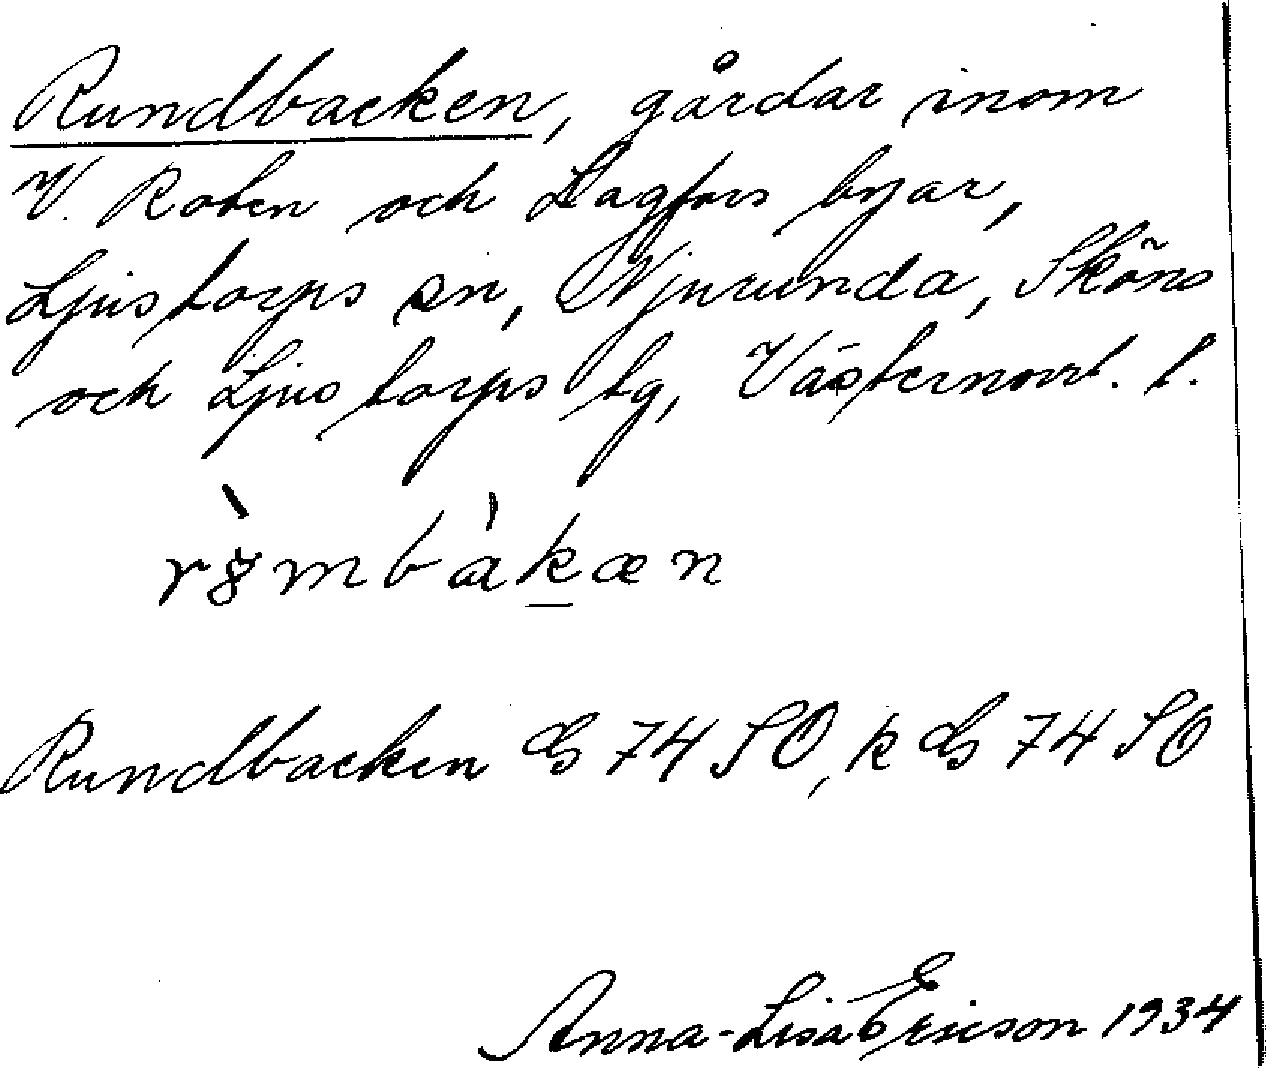 Rundbacken, gårdar inom
V. Roten och Lagfors byar,
Ljustorps sn, Njurunda, Sköns
och Ljustorps tg, Västernorrl. l.
Rundbacken GS 74 SO, k GS 74 SO
Anna-Lisa Ericson 1934